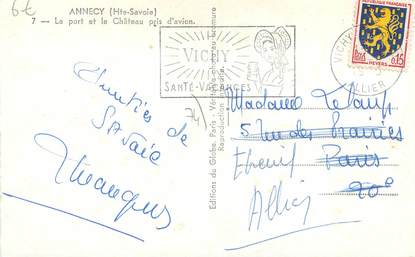 6€
ANNECY (Hte-Savoie)
7 - Le port et le Château pris d'avion.
VICHY
SANTÉ-VACANCES
VICHY
ALLIER
REPUBLIQUE FRANÇAISE
0,15
NEVERS
74
Amitiés de
Savoie
Editions du Globe, Paris - Véritable photo au bromure
Reproduction interdite.
Madame
5 rue des Prairies
Ebreuil Paris
Allier 20e